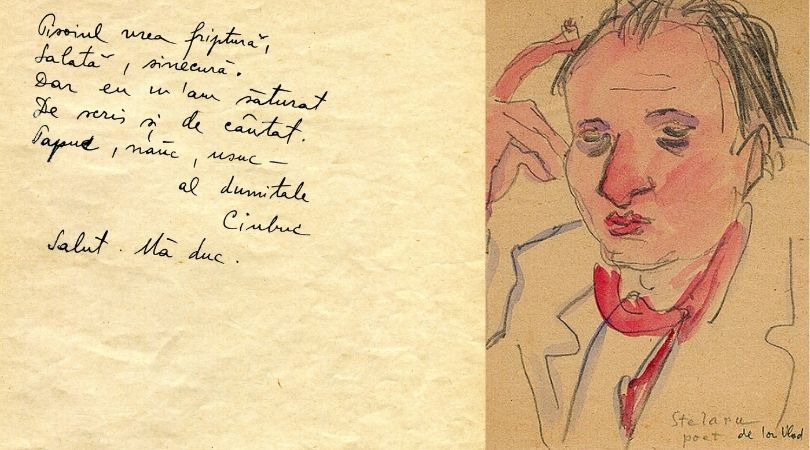 Pisoiul vrea friptură,
Salată, sinecură.
Dar eu m'am săturat
De scris și de cântat.
Papuc, năuc, usuc —
al dumitale
Ciubuc
Salut. Mă duc.
Stelaru
poet de Ion Vlad